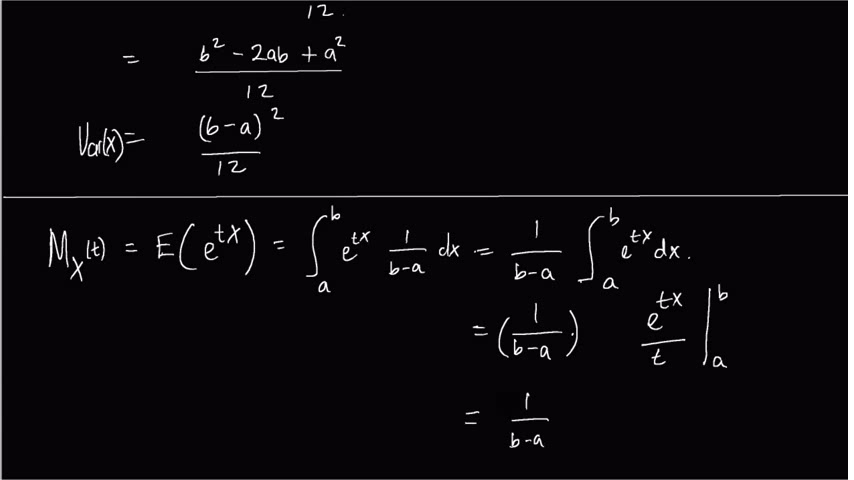 12.
= b² - 2ab + a² / 12
Var(X) = (b-a)² / 12
M_X(t) = E(e^{tX}) = ∫_a^b e^{tx} 1/(b-a) dx = 1/(b-a) ∫_a^b e^{tx} dx.
= (1/(b-a).) e^{tx}/t |_a^b
= 1/(b-a)